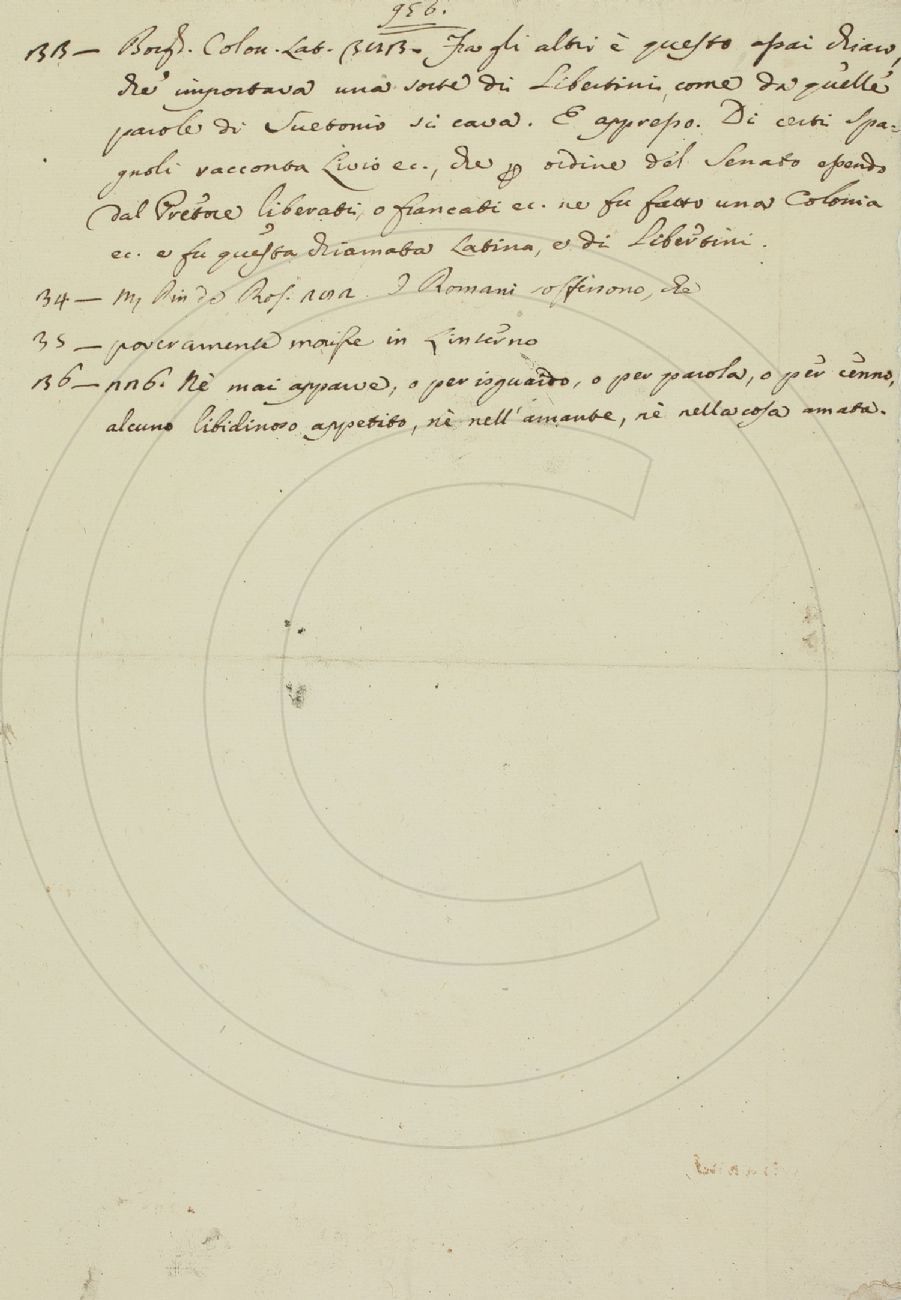 956.
33 — Borgh. Colon. Lat. Fra gli altri è questo assai chiaro,
che importava una sorte di Libertini, come da quelle
parole di Suetonio si cava. E appresso. Di certi Spa=
gnoli racconta Livio ec., che p ordine del Senato essendo
dal Pretore liberati, o francati ec. ne fu fatto una Colonia
ec. e fu questa chiamata Latina, e di Libertini.
34 — I Romani soffersono, che
35 — poveramente morisse in Linterno
36 — Nè mai apparve, o per isguardo, o per parola, o per cenno,
alcuno libidinoso appetito, nè nell'amante, nè nella cosa amata.